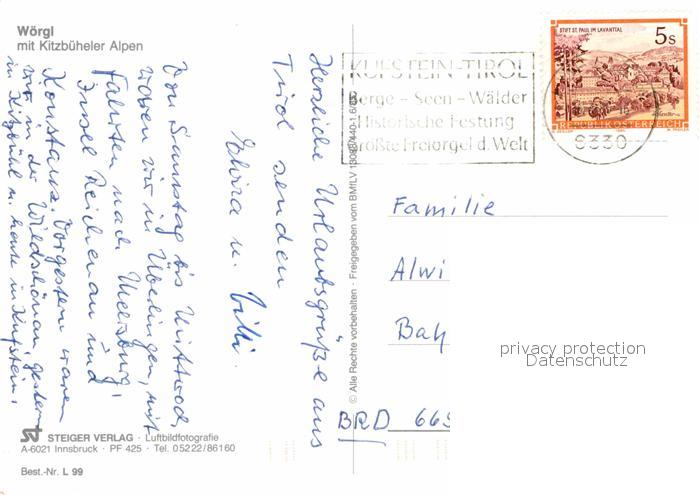 Wörgl
mit Kitzbüheler Alpen
Herzliche Urlaubsgrüße aus
Tirol senden
Elvira u. Willi.
Von Samstag bis Mittwoch,
waren wir in Überlingen, mit
Fahrten nach Meersburg,
Insel Reichenau und
Konstanz. Vorgestern waren
wir in der Wildschönau, gestern
in Kitzbühl u. heute in Kufstein.
STEIGER VERLAG · Luftbildfotografie
A-6021 Innsbruck · PF 425 · Tel. 05222/86160
Best.-Nr. L 99
© Alle Rechte vorbehalten · Freigegeben vom BMfLV
KUFSTEIN-TIROL
Berge - Seen - Wälder
Historische Festung
Größte Freiorgel d. Welt
STIFT ST. PAUL IM LAVANTTAL
5 S
REPUBLIK ÖSTERREICH
6330
Familie
Alwi
BRD 66
privacy protection
Datenschutz